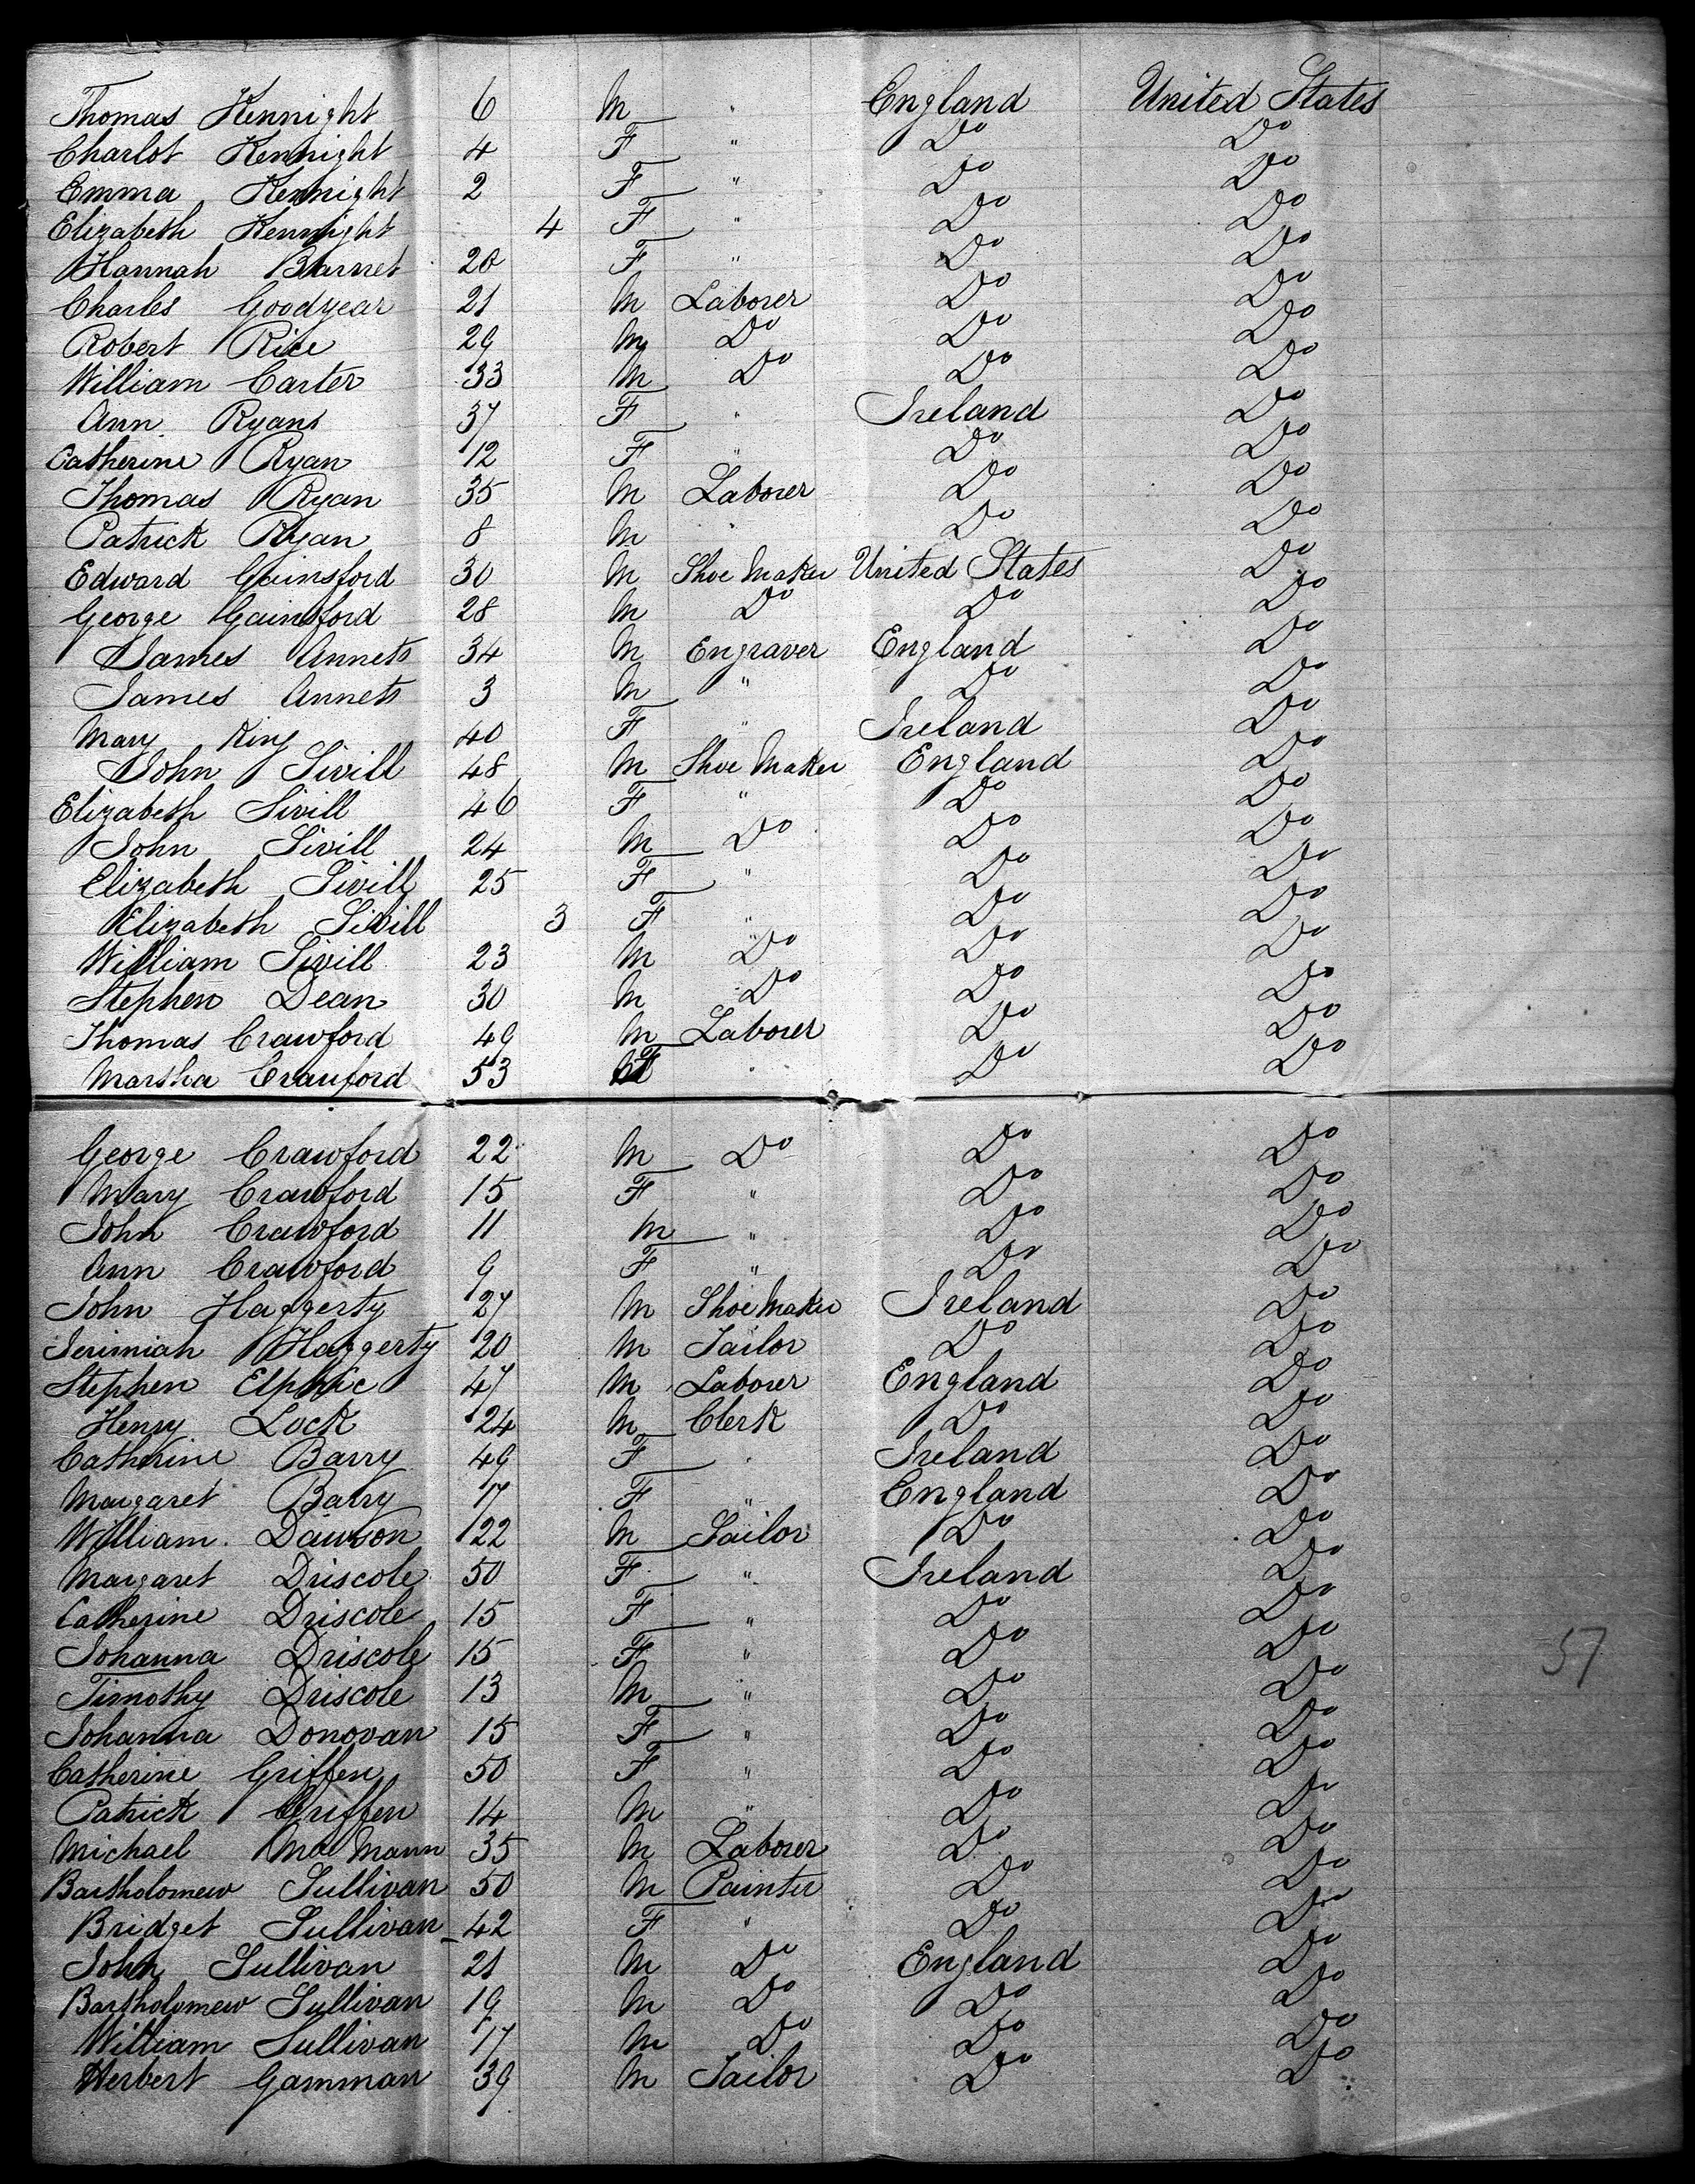 Thomas Kennight 6 M " England United States
Charlot Kennight 4 F " Do Do
Emma Kennight 2 F " Do Do
Elizabeth Kennight 4 F " Do Do
Hannah Barnet 20 F " Do Do
Charles Goodyear 21 M Laborer Do Do
Robert Rice 29 M Do Do Do
William Carter 33 M Do Do Do
Ann Ryans 37 F " Ireland Do
Catherine Ryan 12 F " Do Do
Thomas Ryan 35 M Laborer Do Do
Patrick Ryan 8 M " Do Do
Edward Gainsford 30 M Shoe Maker United States Do
George Gainsford 28 M Do Do Do
James Annets 34 M Engraver England Do
James Annets 3 M " Do Do
Mary King 40 F " Ireland Do
John Sivill 48 M Shoe Maker England Do
Elizabeth Sivill 46 F " Do Do
John Sivill 24 M Do Do Do
Elizabeth Sivill 25 F " Do Do
Elizabeth Sivill 3 F " Do Do
William Sivill 23 M Do Do Do
Stephen Dean 30 M Do Do Do
Thomas Crawford 49 M Laborer Do Do
Marsha Crawford 53 F " Do Do
George Crawford 22 M Do Do Do
Mary Crawford 15 F " Do Do
John Crawford 11 M " Do Do
Ann Crawford 9 F " Do Do
John Haggerty 27 M Shoe Maker Ireland Do
Jerimiah Haggerty 20 M Tailor Do Do
Stephen Elphic 47 M Laborer England Do
Henry Lock 24 M Clerk Do Do
Catherine Barry 49 F " Ireland Do
Margaret Barry 17 F " England Do
William Dawson 22 M Sailor Do Do
Margaret Driscole 50 F " Ireland Do
Catherine Driscole 15 F " Do Do
Johanna Driscole 15 F " Do Do
Timothy Driscole 13 M " Do Do
Johanna Donovan 15 F " Do Do
Catherine Griffen 50 F " Do Do
Patrick Griffen 14 M " Do Do
Michael Mac Mann 35 M Laborer Do Do
Bartholomew Sullivan 50 M Painter Do Do
Bridget Sullivan 42 F " Do Do
John Sullivan 21 M Do England Do
Bartholomew Sullivan 19 M Do Do Do
William Sullivan 17 M Do Do Do
Herbert Gamman 39 M Tailor Do Do
57